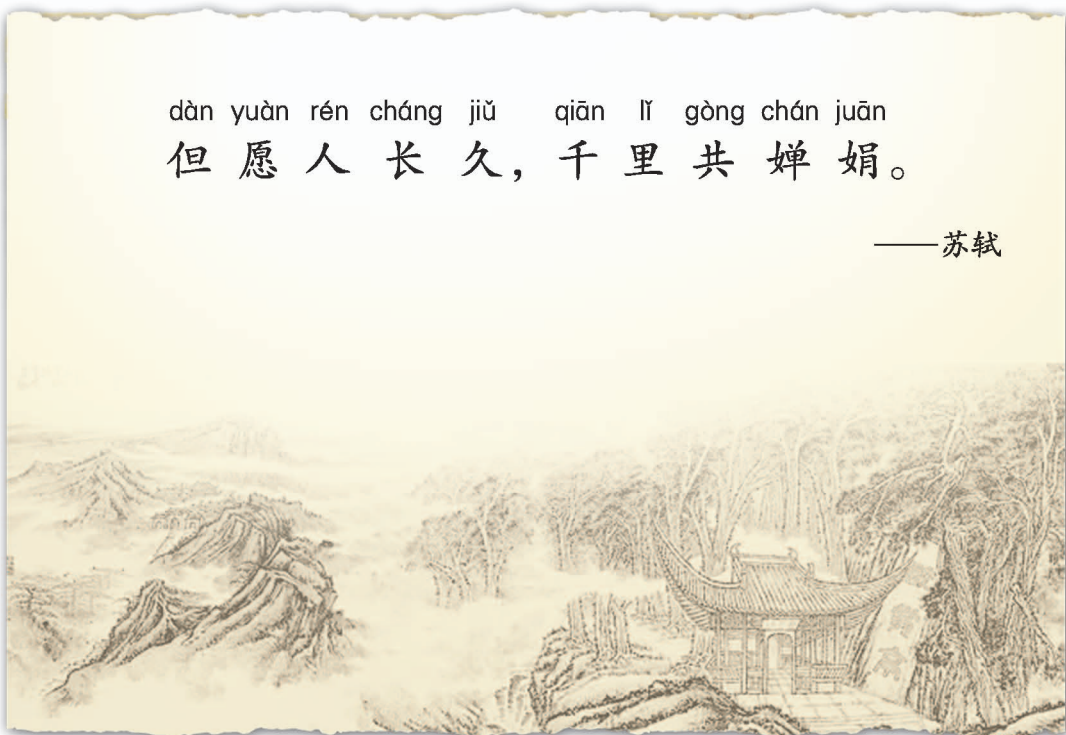 dàn yuàn rén cháng jiǔ qiān lǐ gòng chán juān
但愿人长久，千里共婵娟。
——苏轼